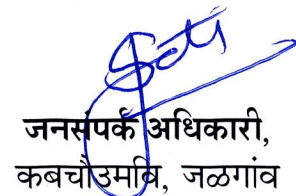 जनसंपर्क अधिकारी,
कबचौउमवि, जळगांव